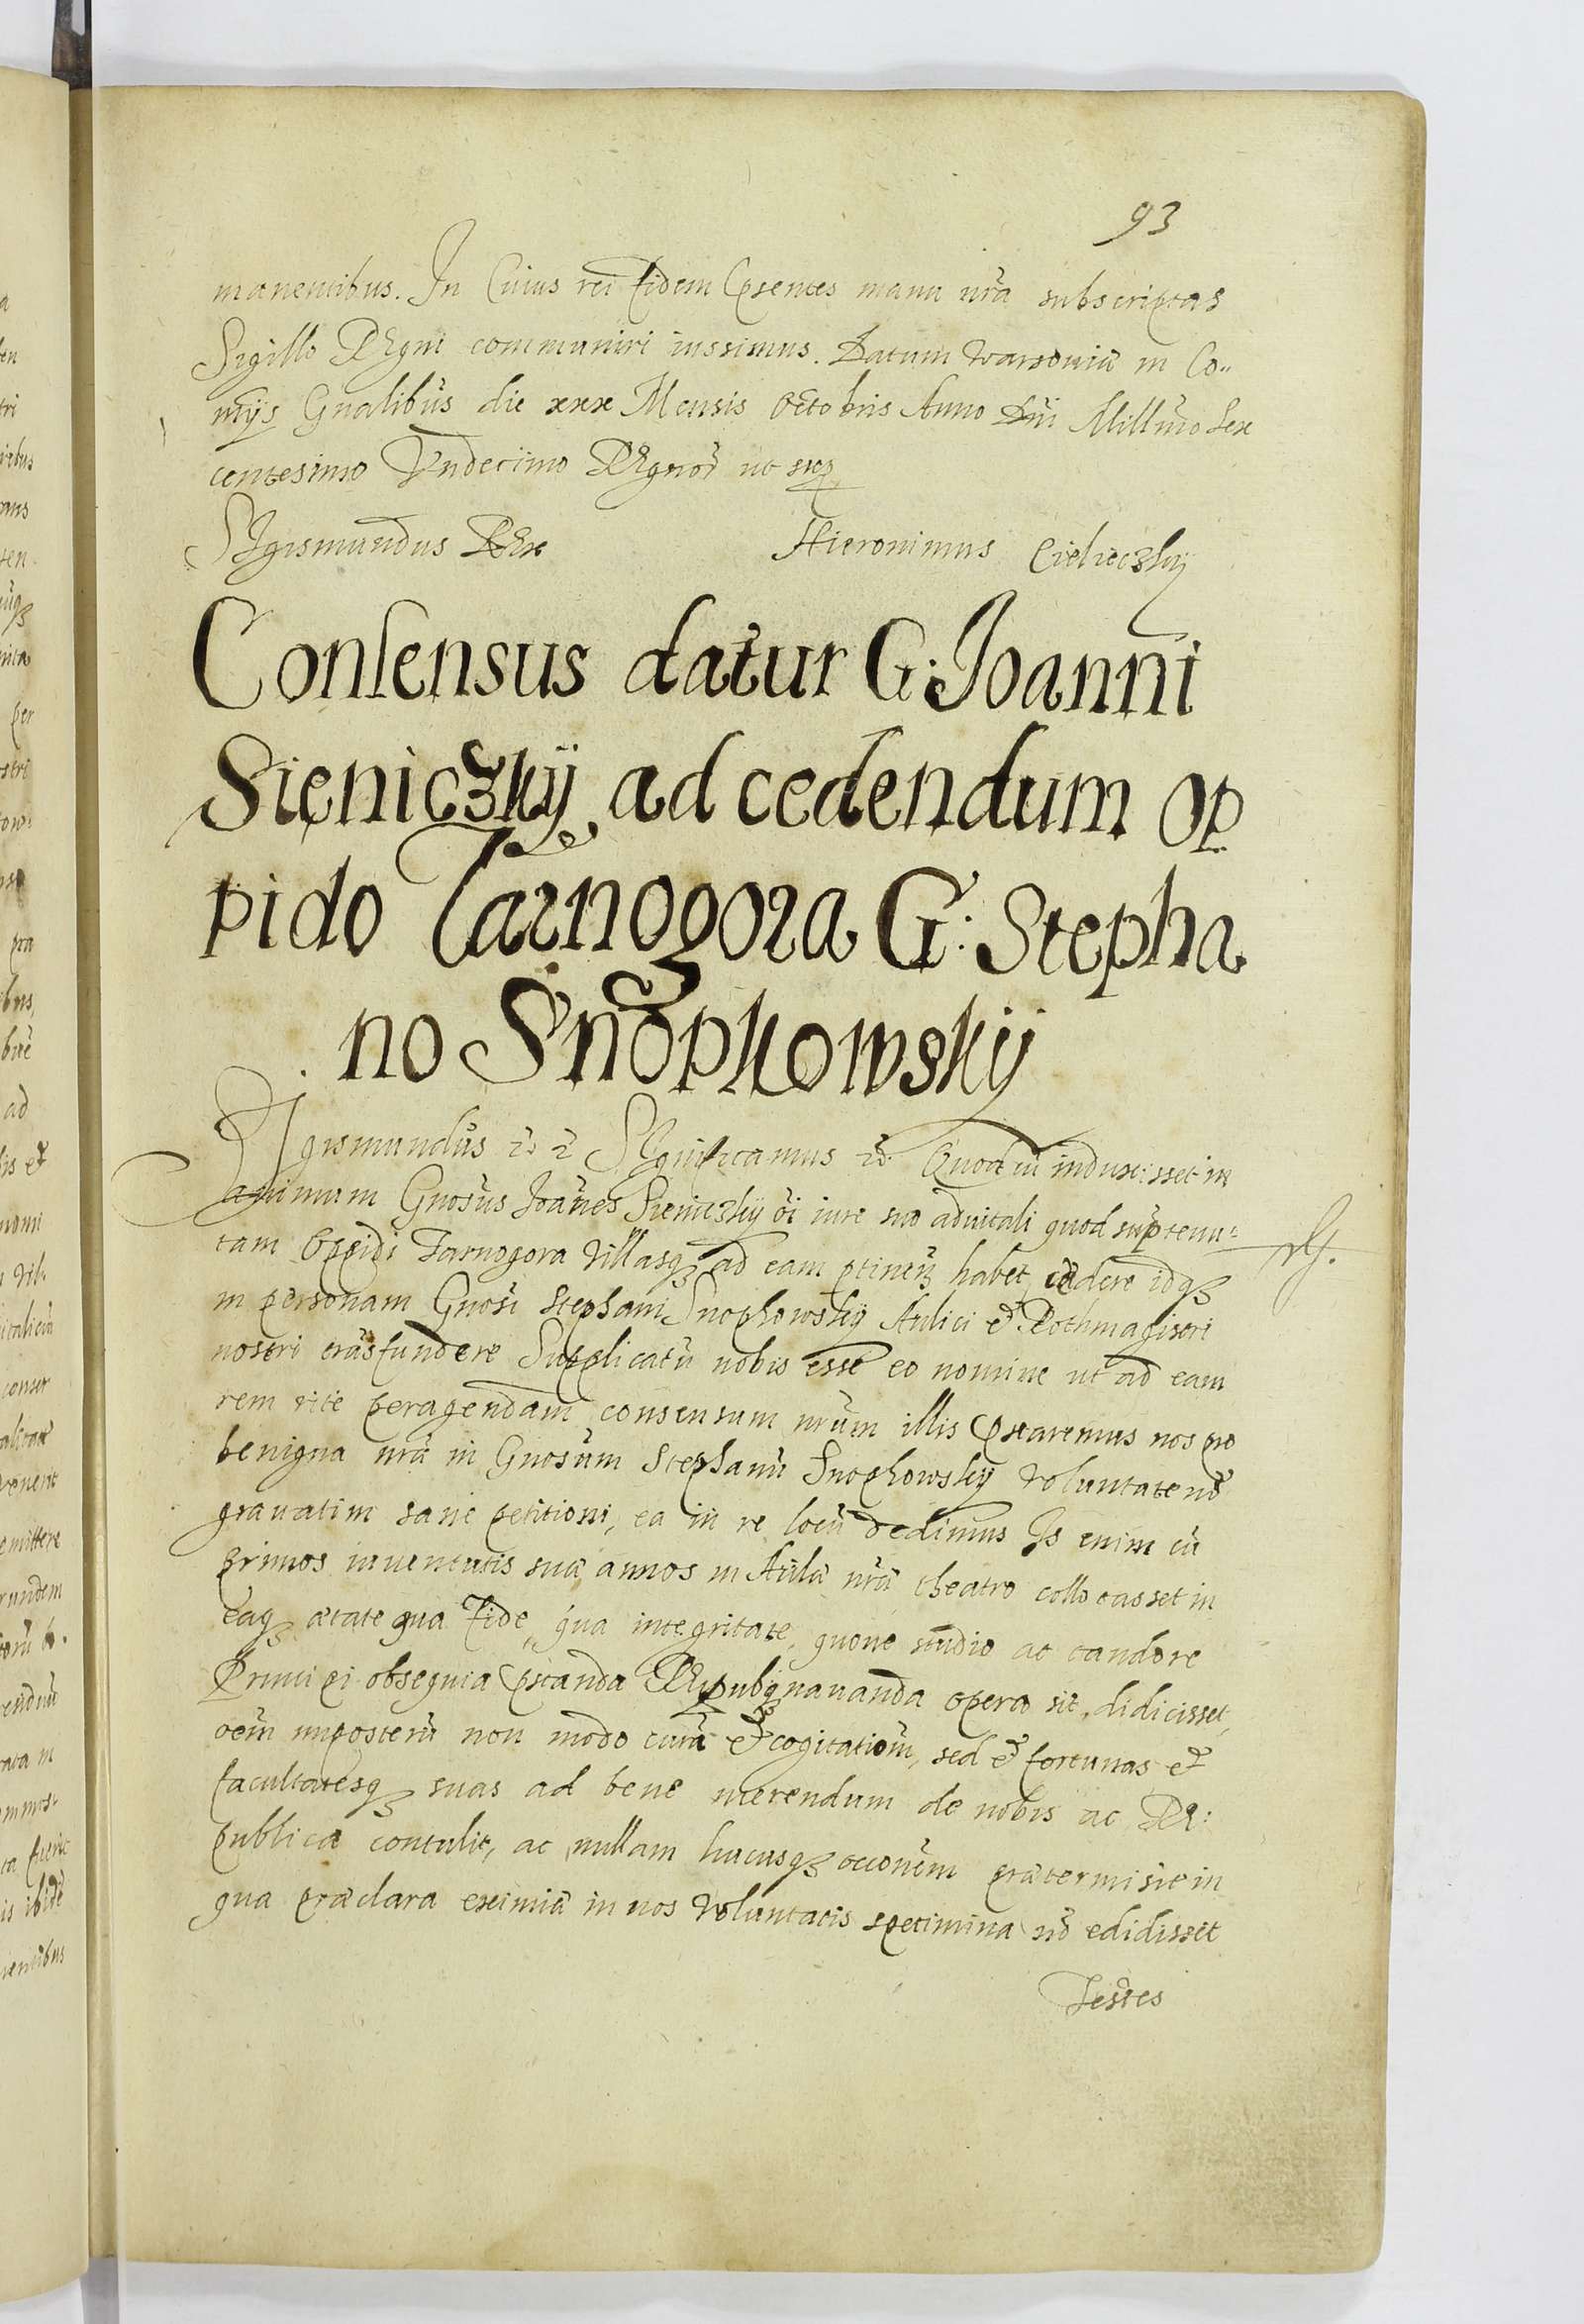 93
manentibus. In Cuius rei fidem pr̃sentes manu nr̃a subscriptas
Sigillo REgni communiri iussimus. Datum Warsouiæ in Co„
mitijs Gn̄alibus die xxx Mensis Octobris Anno Dn̄i Mill̄mo Sex
centesimo Vndecimo REgnor̄ ut sup̱
SIgismundus REx Hieronimus Cieleczky
Consensus datur G: Joanni
Sieniczkÿ ad cedendum Op
pido Tarnogora G: Stepha
no Snopkowskÿ
SIgismundus SIgnificamus Quod cū induxisset in
animum Gn̄osus Joānes Sieniczkÿ oī iure suo aduitali quod sup tenu=
tam Oppidi Tarnogora Villasqʒ ad eam ptineñ habet, cedere idqʒ
in personam Gn̄osi Stephani Snopkowskÿ Aulici et Rothmagistri
nostri trāsfundere Supplicatū nobis esse eo nomine ut ad eam
rem rite peragendam consensum nr̄um illis pr̃staremus nos pro
benigna nr̄a in Gn̄osum Stephanū Snopkowskÿ Voluntate nō
grauatim sane petitioni, ea in re locū dedimus Is enim cū
primos iuuentutis suæ annos in Aulæ nr̄æ theatro collocasset in
eaqʒ ætate qua fide, qua integritate, quoue studio ac candore
Principi obsequia pr̃standa REipubqʒ nauanda opera sit, didicisset,
oēm inposterū non modo curā et cogitationē, sed et fortunas et
facultatesqʒ suas ad bene merendum de nobis ac RE:
publica contulit, ac nullam hucusqʒ occonēm prætermisit in
qua præclara eximiæ in nos Voluntatis specimina nō edidisset
Testes